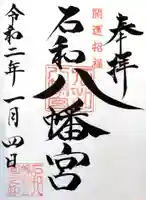 奉拝
開運招福
石和八幡宮
令和二年一月四日